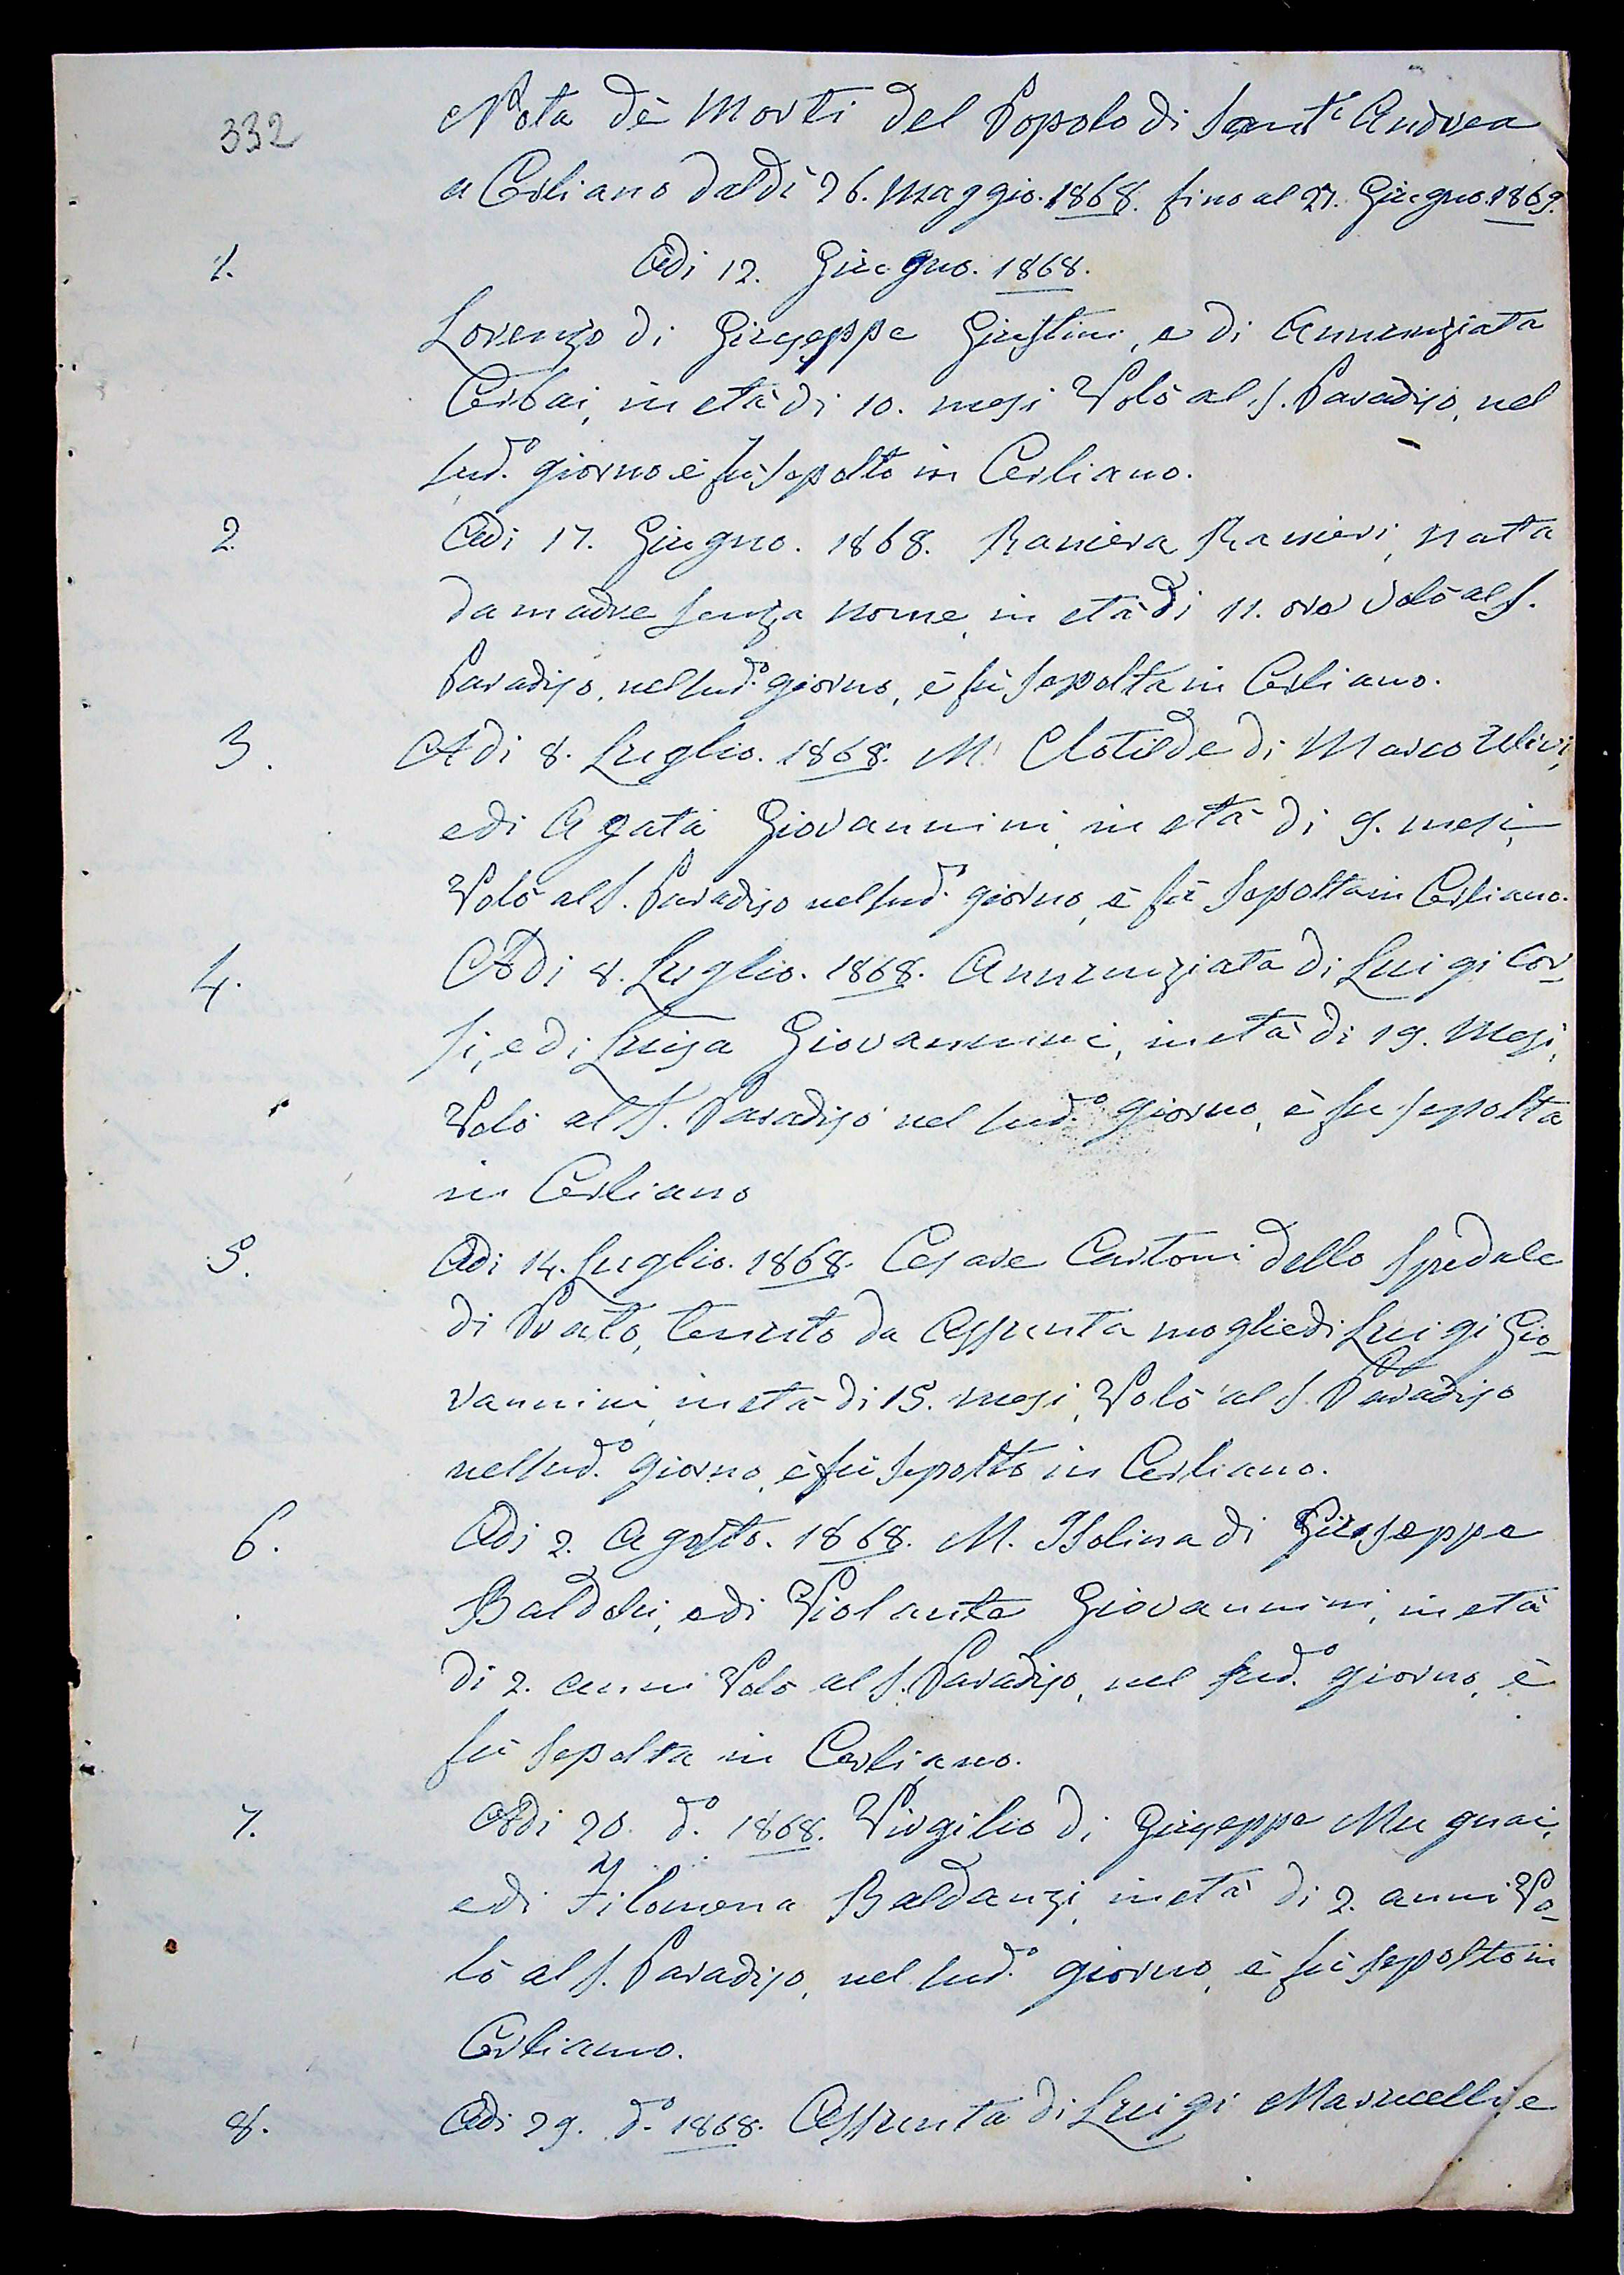 332
Nota dè Morti del Popolo di Sant'Andrea
a Cerliano dal dì 26. Maggio. 1868. fino al 27. Giugno. 1869.
1. Adi 12. Giugno. 1868.
Lorenzo di Giuseppe Giustini, e di Annunziata
Cerbai, in età di 10. mesi Volò al S. Paradiso, nel
sud.º giorno è fù sepolto in Cerliano.
2. Adi 17. Giugno. 1868. Raniera Ranieri, nata
da madre senza nome, in età di 11. ore volò al S.
Paradiso, nel sud.º giorno, è fù sepolta in Cerliano.
3. Adi 8. Luglio. 1868. M. Clotilde di Marco Ulivi,
e di Agata Giovannini, in età di 9. mesi,
Volò al S. Paradiso nel sud.º giorno, è fù sepolta in Cerliano.
4. Adi 8. Luglio. 1868. Annunziata di Luigi Cor-
si, e di Luisa Giovannini, in età di 19. Mesi,
Volò al S. Paradiso nel sud.º giorno, è fu sepolta
in Cerliano
5. Adi 14. Luglio. 1868. Cesare Cartoni dello Spedale
di Prato, tenuto da Assunta moglie di Luigi Gio-
vannini, in età di 15. mesi, Volò al S. Paradiso
nel sud.º giorno, è fù sepolto in Cerliano.
6. Adi 2. Agosto. 1868. M. Isolina di Giuseppe
e di Violante Giovannini, in età
di 2. anni Volò al S. Paradiso, nel sud.º giorno, è
fù sepolta in Cerliano.
7. Adi 20. d.º 1868. Virgilio di Giuseppe Mugnai,
e di Filomena Baldanzi, in età di 2. anni Vo-
lò al S. Paradiso, nel sud.º giorno, è fù sepolto in
Cerliano.
8. Adi 29. d.º 1868. Assunta di Luigi Marucelli, e